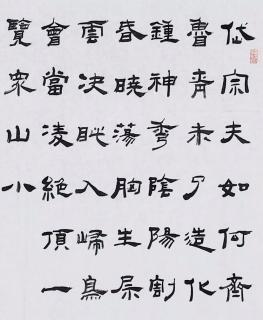 岱宗夫如何齊
魯青未了造化
鍾神秀陰陽割
昏曉蕩胸生层
雲決眦入歸鳥
會當凌絕頂一
覽眾山小